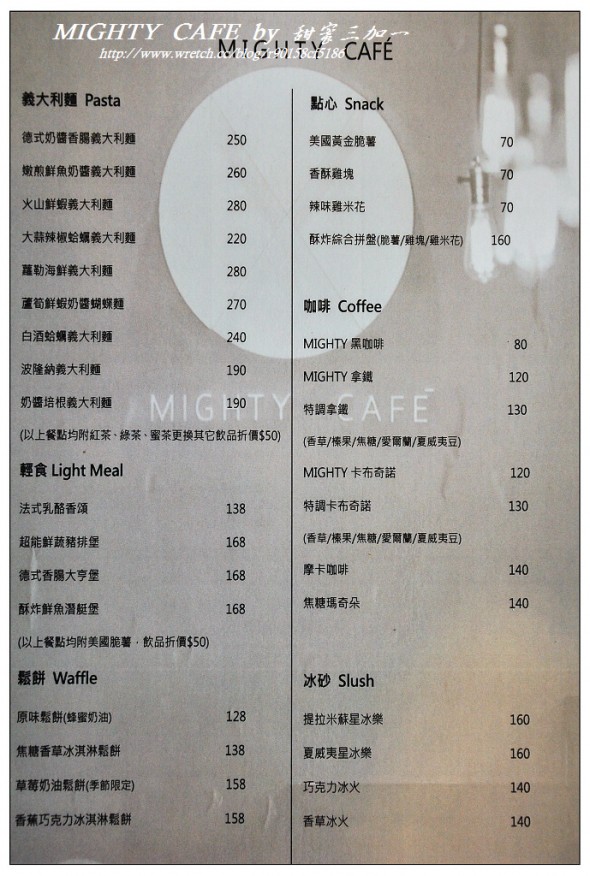 MIGHTY CAFE by 甜蜜三加一
http://www.wretch.cc/blog/r90158cf5186
MIGHTY CAFÉ
義大利麵 Pasta
德式奶醬香腸義大利麵 250
嫩煎鮮魚奶醬義大利麵 260
火山鮮蝦義大利麵 280
大蒜辣椒蛤蠣義大利麵 220
蘿勒海鮮義大利麵 280
蘆筍鮮蝦奶醬蝴蝶麵 270
白酒蛤蠣義大利麵 240
波隆納義大利麵 190
奶醬培根義大利麵 190
(以上餐點均附紅茶、綠茶、蜜茶更換其它飲品折價$50)
輕食 Light Meal
法式乳酪香頌 138
超能鮮蔬豬排堡 168
德式香腸大亨堡 168
酥炸鮮魚潛艇堡 168
(以上餐點均附美國脆薯，飲品折價$50)
鬆餅 Waffle
原味鬆餅(蜂蜜奶油) 128
焦糖香草冰淇淋鬆餅 138
草莓奶油鬆餅(季節限定) 158
香蕉巧克力冰淇淋鬆餅 158
點心 Snack
美國黃金脆薯 70
香酥雞塊 70
辣味雞米花 70
酥炸綜合拼盤(脆薯/雞塊/雞米花) 160
咖啡 Coffee
MIGHTY 黑咖啡 80
MIGHTY 拿鐵 120
特調拿鐵 130
(香草/榛果/焦糖/愛爾蘭/夏威夷豆)
MIGHTY 卡布奇諾 120
特調卡布奇諾 130
(香草/榛果/焦糖/愛爾蘭/夏威夷豆)
摩卡咖啡 140
焦糖瑪奇朵 140
冰砂 Slush
提拉米蘇星冰樂 160
夏威夷星冰樂 160
巧克力冰火 140
香草冰火 140
MIGHTY CAFÉ